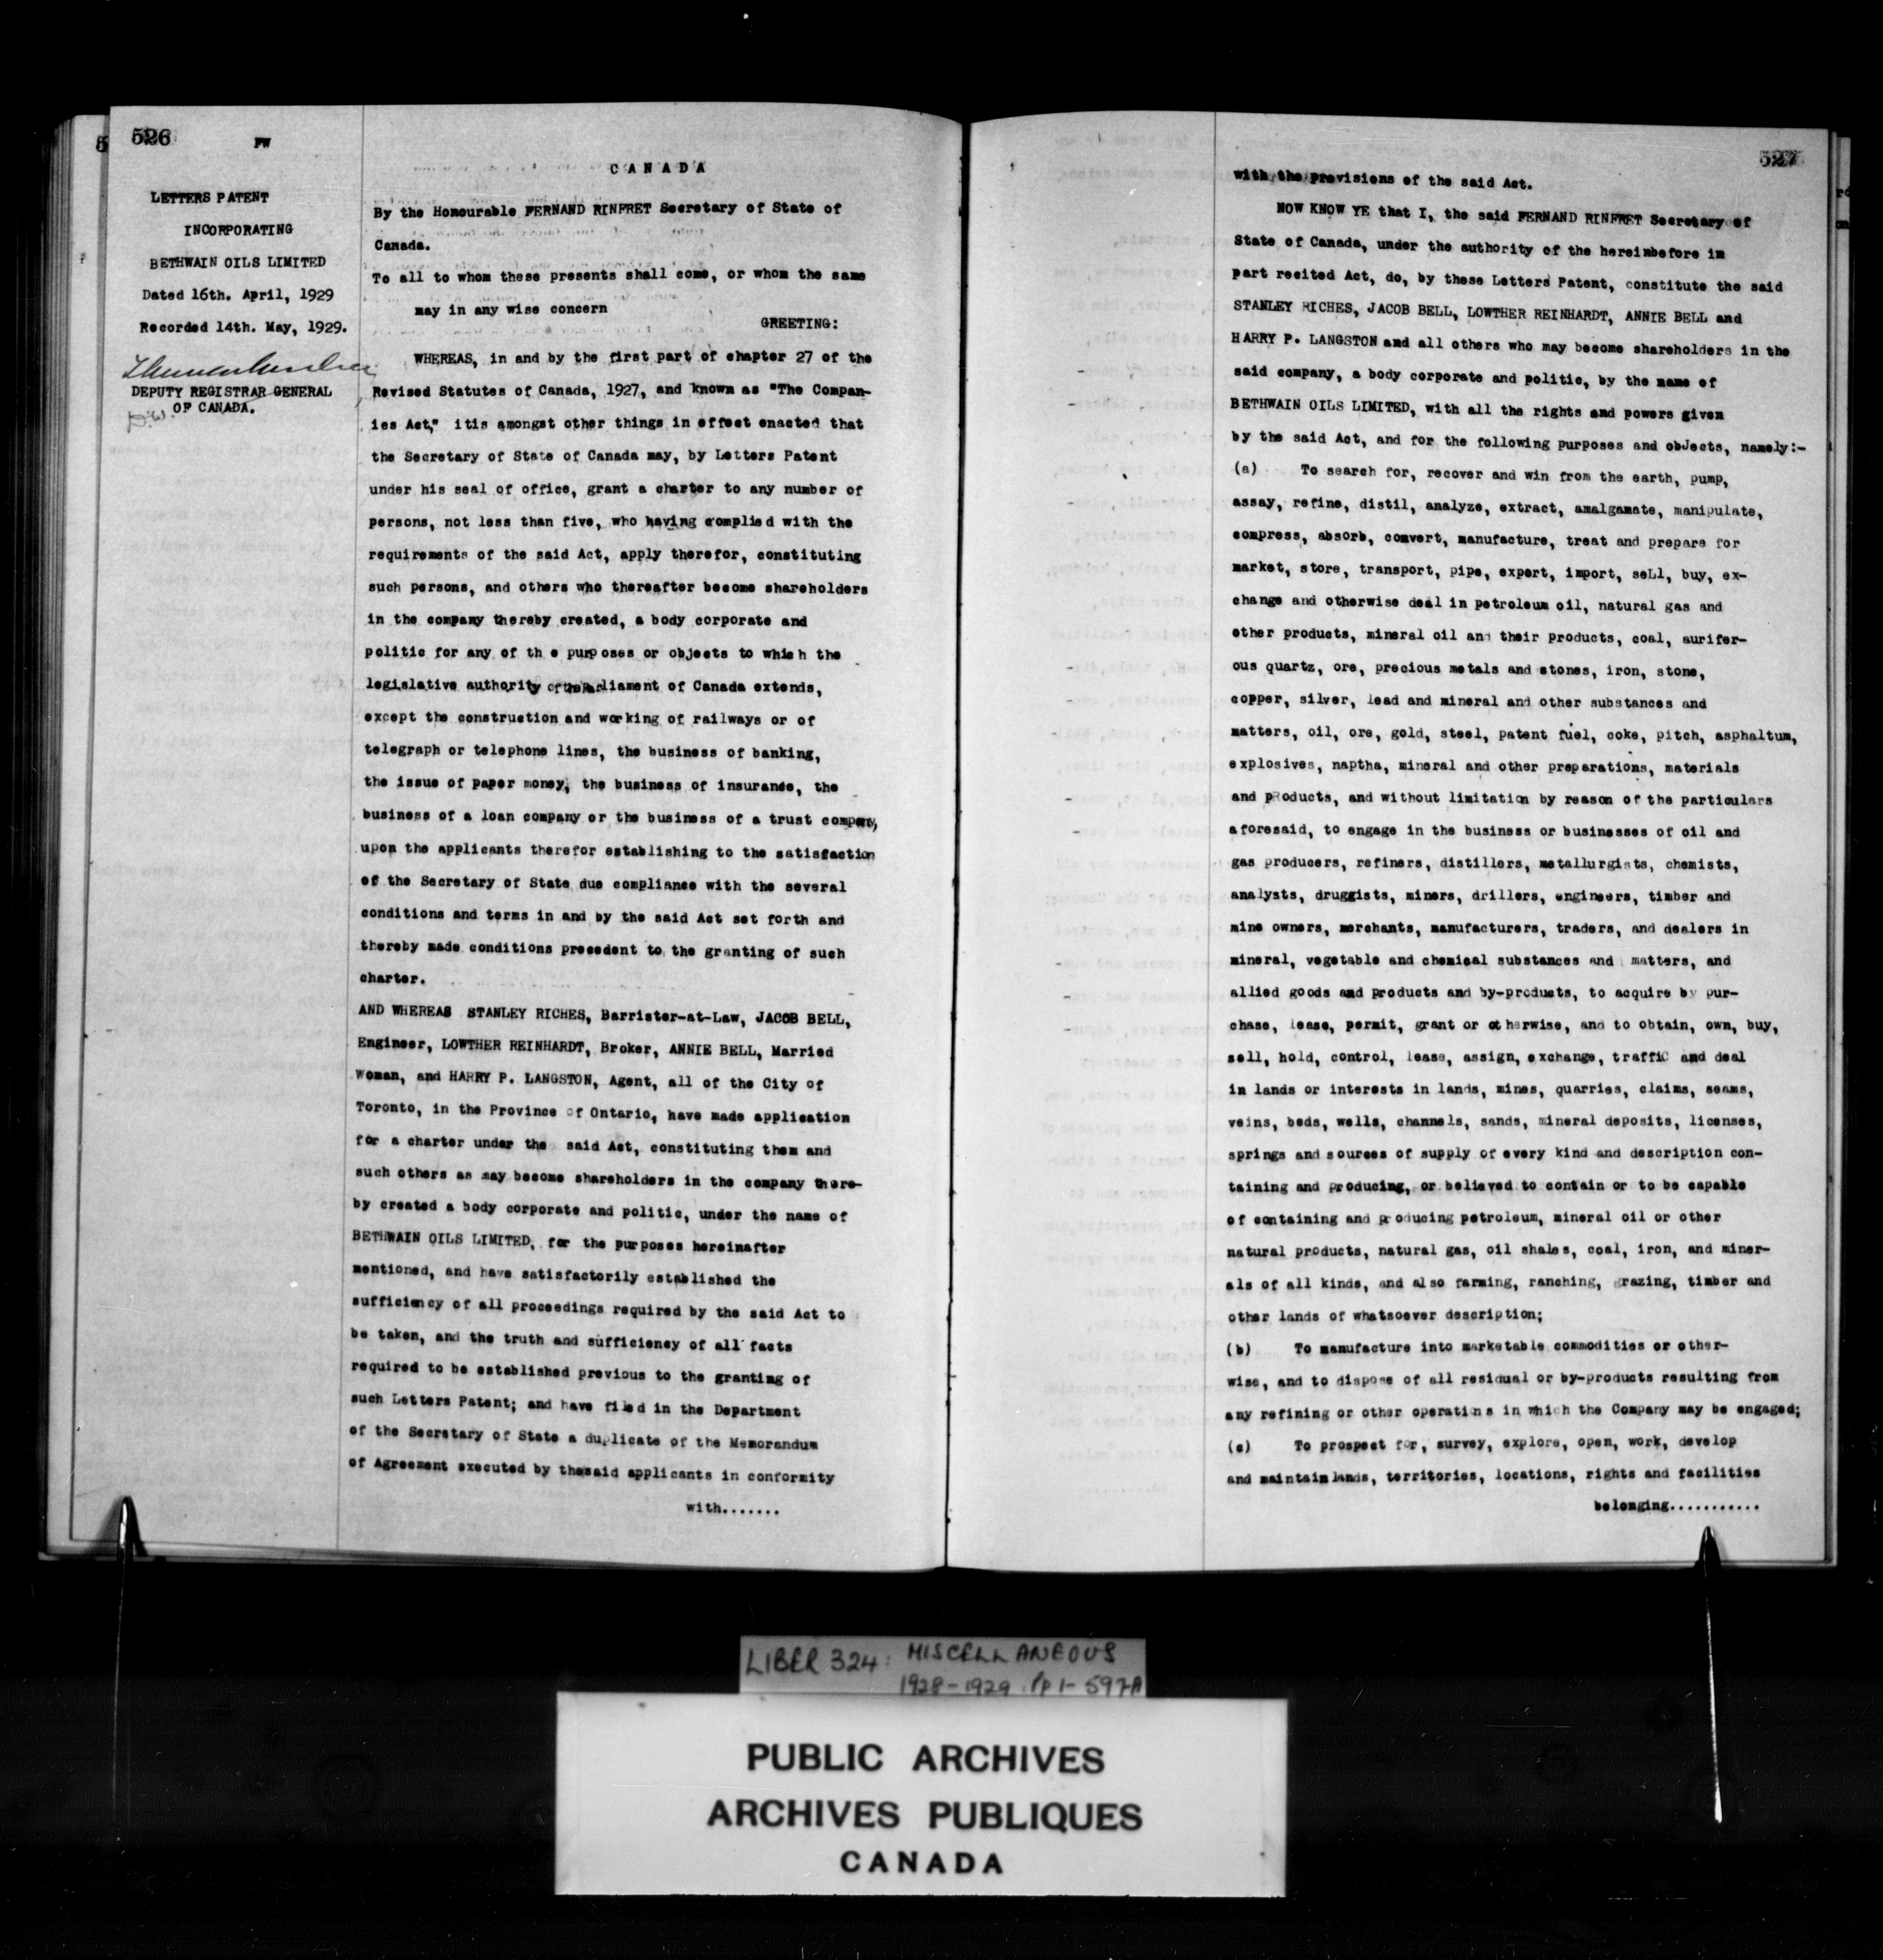 526
FW
LETTERS PATENT
INCORPORATING
BETHWAIN OILS LIMITED
Dated 16th. April, 1929
Recorded 14th. May, 1929.
DEPUTY REGISTRAR GENERAL
OF CANADA.
CANADA
By the Honourable FERNAND RINFRET Secretary of State of
Canada.
To all to whom these presents shall come, or whom the same
may in any wise concern
GREETING:
WHEREAS, in and by the first part of chapter 27 of the
Revised Statutes of Canada, 1927, and known as "The Compan-
ies Act," itis amongst other things in effect enacted that
the Secretary of State of Canada may, by Letters Patent
under his seal of office, grant a charter to any number of
persons, not less than five, who having complied with the
requirements of the said Act, apply therefor, constituting
such persons, and others who thereafter become shareholders
in the company thereby created, a body corporate and
politic for any of th e purposes or objects to which the
legislative authority of the Parliament of Canada extends,
except the construction and working of railways or of
telegraph or telephone lines, the business of banking,
the issue of paper money, the business of insurance, the
business of a loan company or the business of a trust company,
upon the applicants therefor establishing to the satisfaction
of the Secretary of State due compliance with the several
conditions and terms in and by the said Act set forth and
thereby made conditions precedent to the granting of such
charter.
AND WHEREAS STANLEY RICHES, Barrister-at-Law, JACOB BELL,
Engineer, LOWTHER REINHARDT, Broker, ANNIE BELL, Married
Woman, and HARRY P. LANGSTON, Agent, all of the City of
Toronto, in the Province of Ontario, have made application
for a charter under the said Act, constituting them and
such others as may become shareholders in the company there-
by created a body corporate and politic, under the name of
BETHWAIN OILS LIMITED, for the purposes hereinafter
mentioned, and have satisfactorily established the
sufficiency of all proceedings required by the said Act to
be taken, and the truth and sufficiency of all facts
required to be established previous to the granting of
such Letters Patent; and have filed in the Department
of the Secretary of State a duplicate of the Memorandum
of Agreement executed by thesaid applicants in conformity
with.......
527
with the provisions of the said Act.
NOW KNOW YE that I, the said FERNAND RINFRET Secretary of
State of Canada, under the authority of the hereinbefore in
part recited Act, do, by these Letters Patent, constitute the said
STANLEY RICHES, JACOB BELL, LOWTHER REINHARDT, ANNIE BELL and
HARRY P. LANGSTON and all others who may become shareholders in the
said company, a body corporate and politic, by the name of
BETHWAIN OILS LIMITED, with all the rights and powers given
by the said Act, and for the following purposes and obJects, namely:-
(a) To search for, recover and win from the earth, pump,
assay, refine, distil, analyze, extract, amalgamate, manipulate,
compress, absorb, convert, manufacture, treat and prepare for
market, store, transport, pipe, export, import, seLl, buy, ex-
change and otherwise deal in petroleum oil, natural gas and
other products, mineral oil and their products, coal, aurifer-
ous quartz, ore, precious metals and stones, iron, stone,
copper, silver, lead and mineral and other substances and
matters, oil, ore, gold, steel, patent fuel, coke, pitch, asphaltum,
explosives, naptha, mineral and other preparations, materials
and pRoducts, and without limitation by reason of the particulars
aforesaid, to engage in the business or businesses of oil and
gas producers, refiners, distillers, metallurgists, chemists,
analysts, druggists, miners, drillers, engineers, timber and
mine owners, merchants, manufacturers, traders, and dealers in
mineral, vegetable and chemical substances and matters, and
allied goods and products and by-products, to acquire by pur-
chase, lease, permit, grant or otherwise, and to obtain, own, buy,
sell, hold, control, lease, assign, exchange, traffiC and deal
in lands or interests in lands, mines, quarries, claims, seams,
veins, beds, wells, channels, sands, mineral deposits, licenses,
springs and sources of supply of every kind and description con-
taining and producing, or believed to contain or to be capable
of containing and producing petroleum, mineral oil or other
natural products, natural gas, oil shales, coal, iron, and miner-
als of all kinds, and also farming, ranching, grazing, timber and
other lands of whatsoever description;
(b) To manufacture into marketable commodities or other-
wise, and to dispose of all residual or by-products resulting from
any refining or other operations in which the Company may be engaged;
(c) To prospect for, survey, explore, open, work, develop
and maintain lands, territories, locations, rights and facilities
belonging...........
LIBER 324: MISCELLANEOUS
1928-1929 Pp 1-597A
PUBLIC ARCHIVES
ARCHIVES PUBLIQUES
CANADA